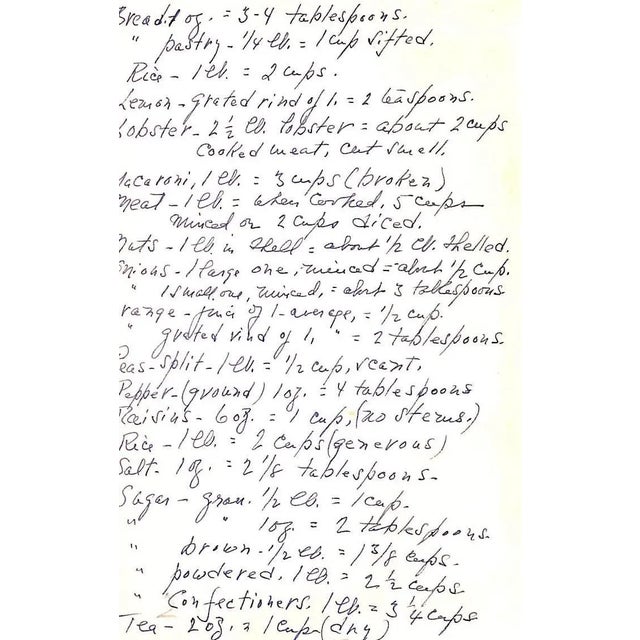 Bread. 1 oz. = 3-4 tablespoons.
" pastry - 1/4 lb. = 1 cup sifted.
Rice - 1 lb. = 2 cups.
Lemon - grated rind of 1, = 2 teaspoons.
Lobster - 2 1/2 lb. lobster = about 2 cups
cooked meat, cut small.
Macaroni, 1 lb. = 3 cups (broken)
Meat - 1 lb. = when cooked, 5 cups
minced or 2 cups diced.
Nuts - 1 lb in shell = about 1/2 lb. shelled.
Onions - 1 large one, minced = about 1/2 cup.
" 1 small one, minced, = about 3 tablespoons
range - juice of 1 - average, = 1/2 cup.
" grated rind of 1, " = 2 tablespoons.
Peas - split - 1 lb. = 1/2 cup, scant.
Pepper - (ground) 1 oz. = 4 tablespoons
Raisins - 6 oz. = 1 cup, (no stems.)
Rice - 1 lb. = 2 cups (generous)
Salt. 1 oz. = 2 1/8 tablespoons -
Sugar - gran. 1/2 lb. = 1 cup.
" " 1 oz. = 2 tablespoons.
" brown - 1/2 lb. = 1 3/8 cups.
" powdered. 1 lb. = 2 1/2 cups
" Confectioners. 1 lb. = 3 1/4 cups
Tea - 2 oz. = 1 cup (dry)